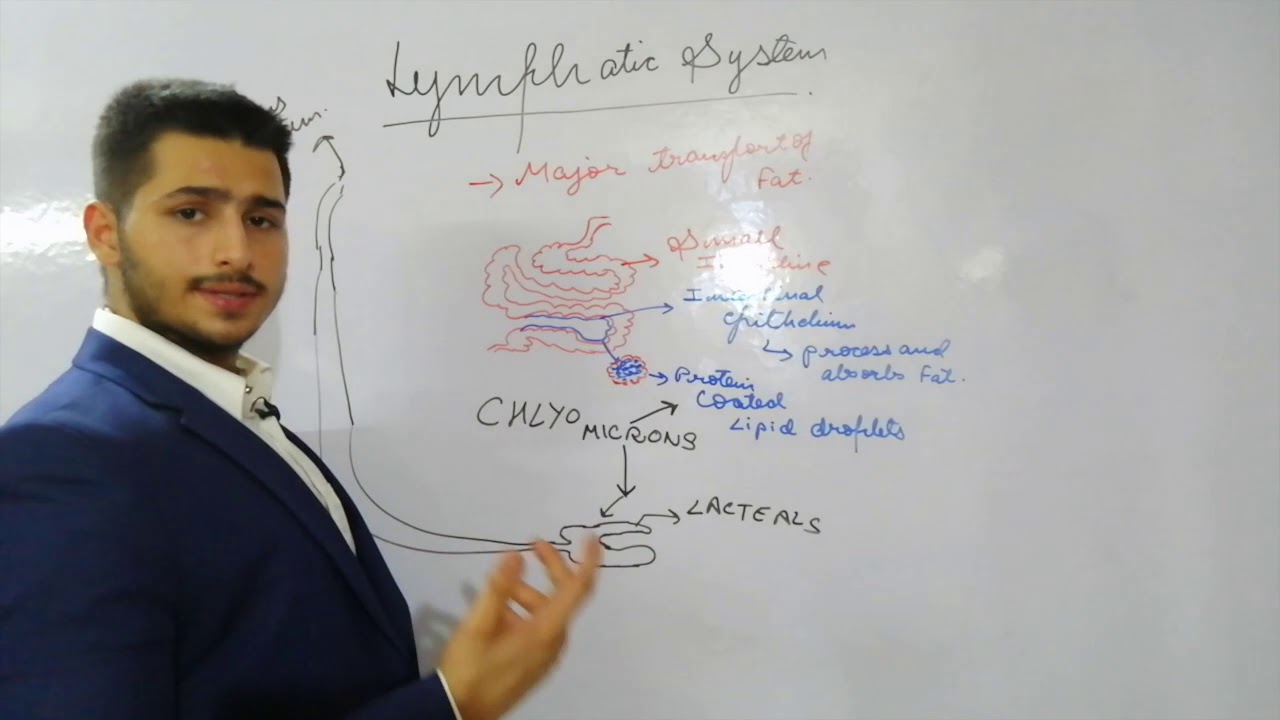 Lymphatic System
→ Major transport of
Fat.
Small
Intestinal
Epithelium
process and
absorbs Fat.
Protein
Coated
Lipid droplets
CHLYOMICRONS
LACTEALS